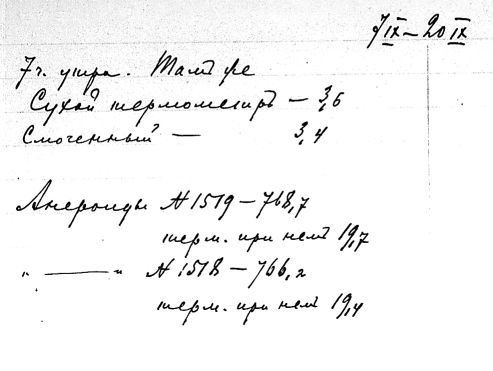 7 IX – 20 IX
7 ч. утра. Тамъ же
Сухой термометръ – 3,6
Смоченный — 3,4
Анероиды № 1519 – 768,7
терм. при немъ 19,7
" —— " № 1518 – 766,2
терм. при немъ 19,4